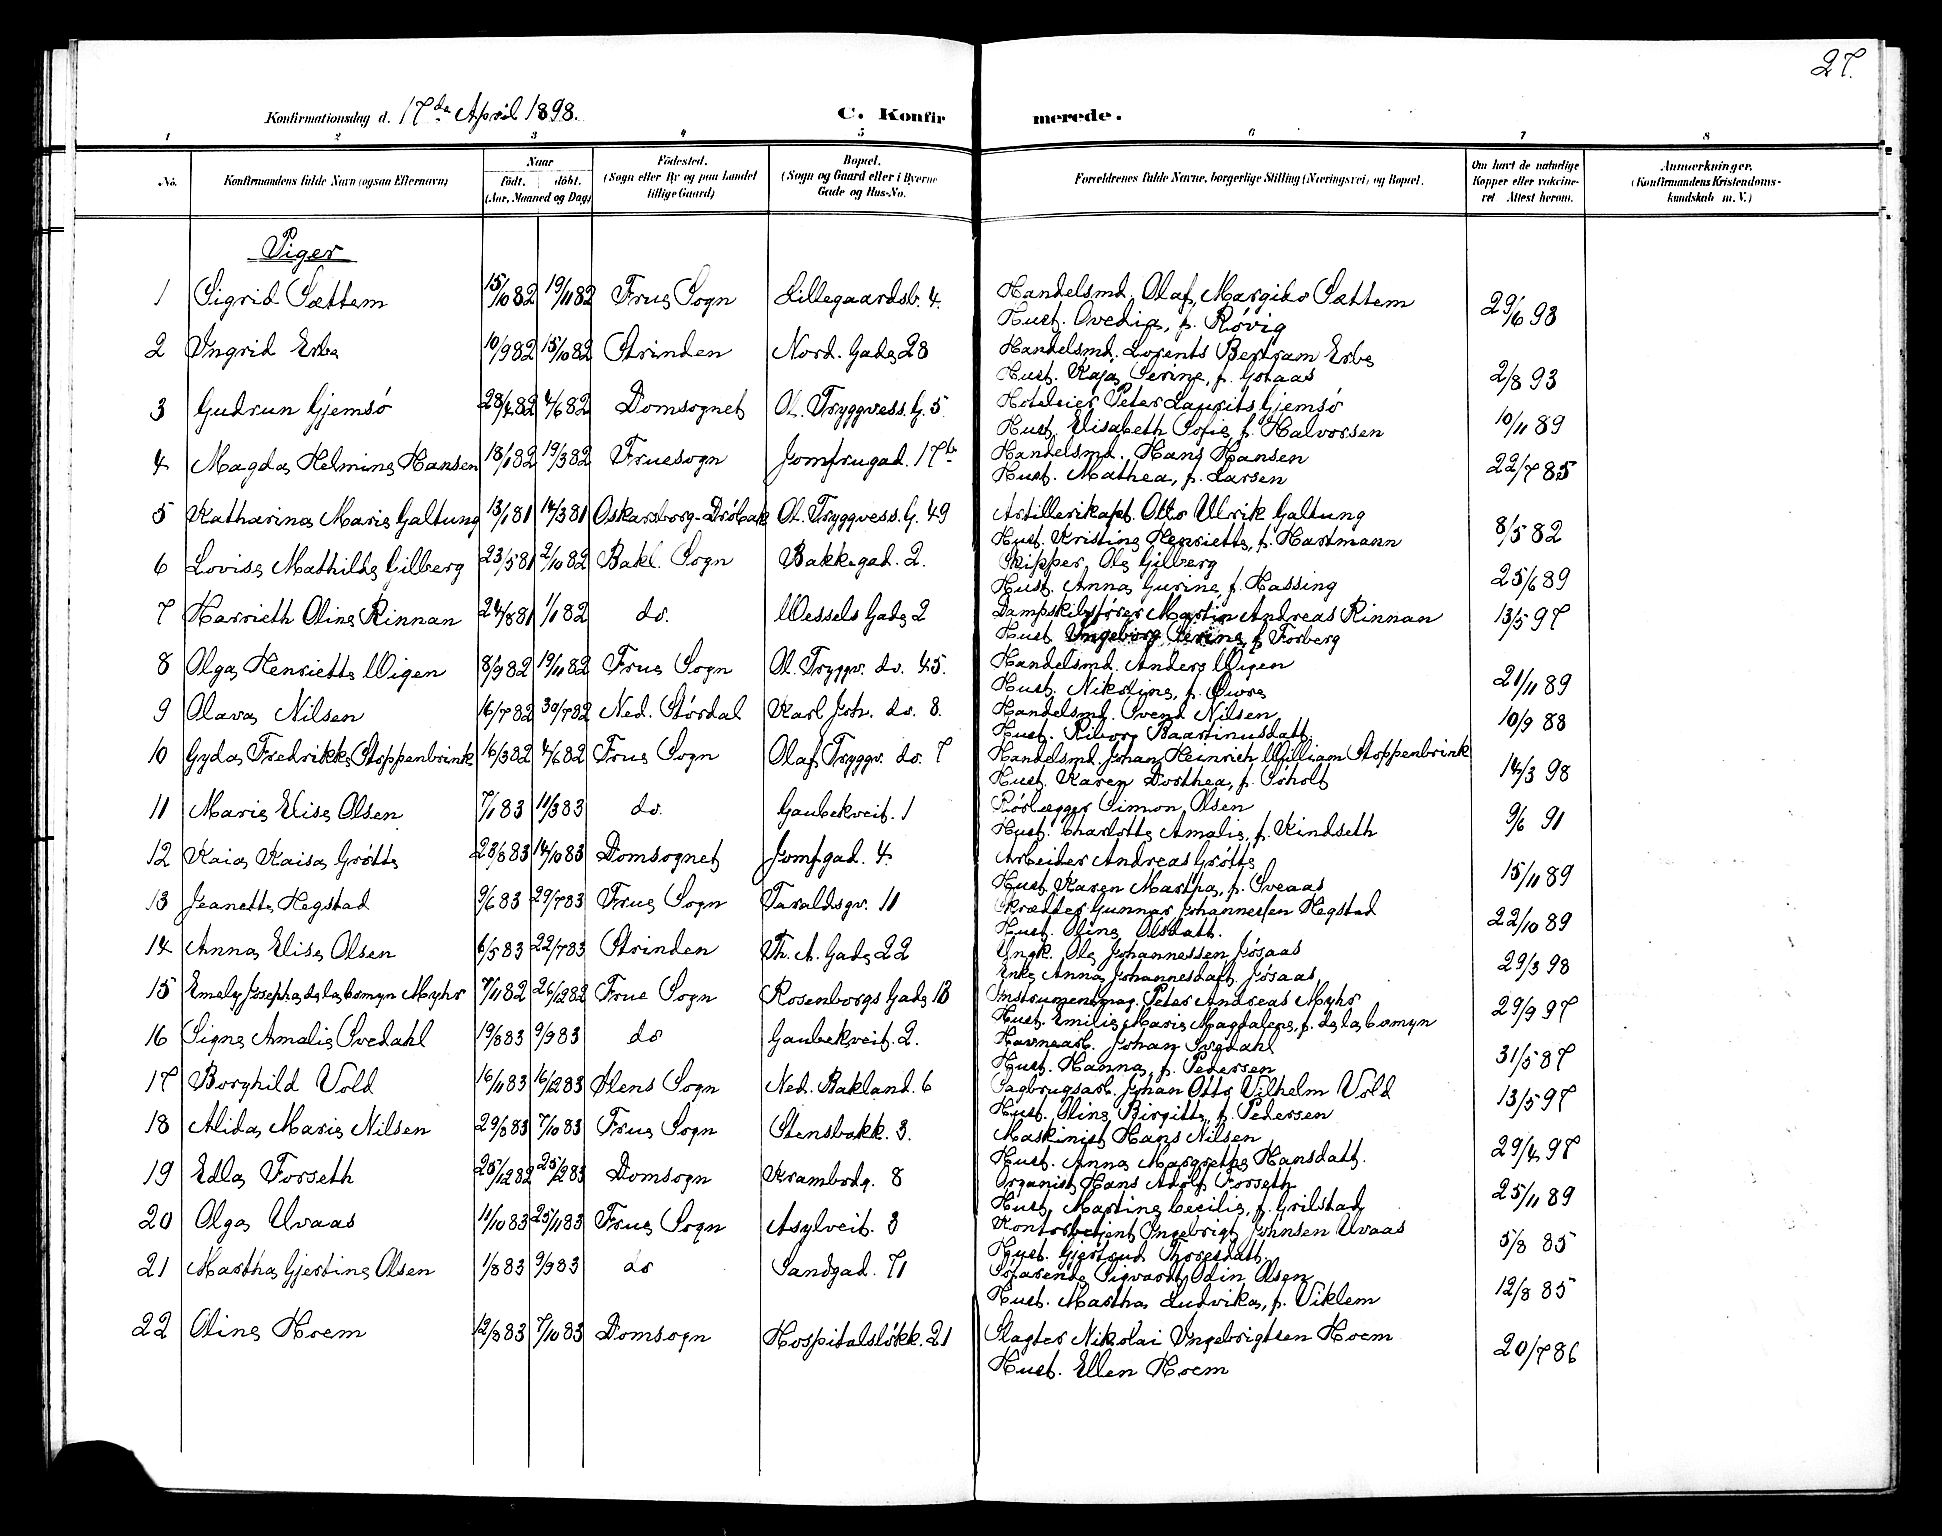 27.
Konfirmationsdag d. 17de April 1898.
C. Konfirmerede.
1 2 3 4 5 6 7 8
No. Konfirmandens fulde Navn (ogsaa Efternavn) Naar Födt. döbt. (Aar, Maaned og Dag) Födested. (Sogn eller By og paa Landet tillige Gaard) Bopæl. (Sogn og Gaard eller i Byerne Gade og Hus-No. Forældrenes fulde Navne, borgerlige Stilling (Næringsvei) og Bopæl. Om havt de naturlige Kopper eller vakcineret Attest herom. Anmærkninger. (Konfirmandens Kristendomskundskab m. V.)
Piger
1 Sigrid Sættem 15/10 82 19/11 82 Frue Sogn Lillegaardsb. 4. Handelsmd. Olaf Sættem
Hust. Ovedia, f. Røvig 29/6 93
2 Ingrid Erbe 10/9 82 15/10 82 Strinden Nord. Gade 28 Handelsmd. Lorents Bertram Erbe
Hust. Kaja Serine, f. Gotaas 2/8 93
3 Gudrun Gjemsö 28/4 82 4/6 82 Domsognet Ol. Tryggvess. G. 5. Hoteleier Peter Laurits Gjemsö
Hust. Elisabeth Sofie f. Halvorsen 10/11 89
4 Magda Helmine Hansen 18/1 82 19/3 82 Fruesogn Jomfrugad. 17b Handelsmd. Hans Hansen
Hust. Mathea, f. Larsen 22/7 85
5 Katharina Marie Galtung 13/1 81 14/3 81 Oskarsborg-Dröbak Ol. Tryggvess. G. 49 Artillerikapt. Otto Ulrik Galtung
Hust. Kristine Henriette, f. Hartmann 8/5 82
6 Lovise Mathilde Gilberg 23/5 81 2/10 82 Bakl. Sogn Bakkegad. 2. Skipper Ole Gilberg
Hust. Anna Gurine, f. Hassing 25/6 89
7 Harrieth Oline Rinnan 24/8 81 1/1 82 do. Wessels Gade 2 Dampskibsfører Martin Andreas Rinnan
Hust. Ingeborg Serine f. Forberg 13/5 97
8 Olga Henriette Wigen 8/9 82 19/11 82 Frue Sogn Ol. Tryggv. do. 45. Handelsmd. Anders Wigen
Hust. Nikoline, f. Øwre 21/11 89
9 Olava Nilsen 16/7 82 30/7 82 Ned. Stördal Karl Joh. do. 8. Handelsmd. Svend Nilsen
Hust. Riborg Baartinusdatt. 10/9 88
10 Gyda Fredrikke Stoppenbrink 16/3 82 4/6 82 Frue Sogn Olaf Tryggv. do. 7 Handelsmd. Johan Heinrich William Stoppenbrink
Hust. Karen Dorthea, f. Soholt 14/3 98
11 Marie Elise Olsen 7/1 83 11/3 83 do. Gaubekveit. 1 Rörlægger Simon Olsen
Hust. Charlotte Amalie, f. Kindseth 9/6 91
12 Kaia Kaisa Gröttе 23/8 83 14/10 83 Domsognet Jomfgad. 4. Arbeider Andreas Gröttе
Hust. Karen Martha, f. Sveaas 15/11 89
13 Jeanette Hegstad 9/6 83 29/7 83 Frue Sogn Taraldsgv. 11 Skrædder Gunnar Johannessen Hegstad
Hust. Oline Olsdatt. 22/10 89
14 Anna Elise Olsen 6/5 83 22/7 83 Strinden Th. A. Gade 22 Ungk. Ole Johannessen Jøsaas
Enke Anna Johannesdatt Jøsaas 29/3 98
15 Emely Josepha de la Comyn Myhr 7/11 82 26/12 82 Frue Sogn Rosenborgs Gade 13 Instrumentmag. Peter Andreas Myhr
Hust. Emilie Marie Magdalene, f. de la Comyn 29/9 97
16 Signe Amalie Svedahl 19/8 83 9/9 83 do Gaubekveit. 2. Havnearb. Johan Svedahl
Hust. Hanna, f. Pedersen 31/5 87
17 Borghild Vold 16/11 83 16/12 83 Ilens Sogn Ned. Bakland. 6 Sagbrugsarb. Johan Otto Vilhelm Vold
Hust. Oline Birgitte, f. Pedersen 13/5 97
18 Alida Marie Nilsen 29/8 83 7/10 83 Frue Sogn Stensbakk. 3. Maskinist Hans Nilsen
Hust. Anna Margrethe Hansdatt. 29/4 97
19 Edla Forseth 25/12 82 25/2 83 Domsogn Krambodg. 8 Organist Hans Adolf Forseth
Hust. Martine Cecilie, f. Grilstad 25/11 89
20 Olga Uvaas 11/10 83 25/11 83 Frue Sogn Asylveit. 3 Kontorbetjent Ingebrigt Johnsen Uvaas
Hust. Gjertrud Thoresdatt. 5/8 85
21 Martha Gjertine Olsen 1/8 83 9/9 83 do Sandgad. 71 Søfarende Sigvardt Odin Olsen
Hust. Martha Ludvika, f. Viklem 12/8 85
22 Oline Hoem 12/8 83 7/10 83 Domsogn Hospitalsløkk. 21 Slagter Nikolai Ingebrigtsen Hoem
Hust. Ellen Hoem 20/7 86